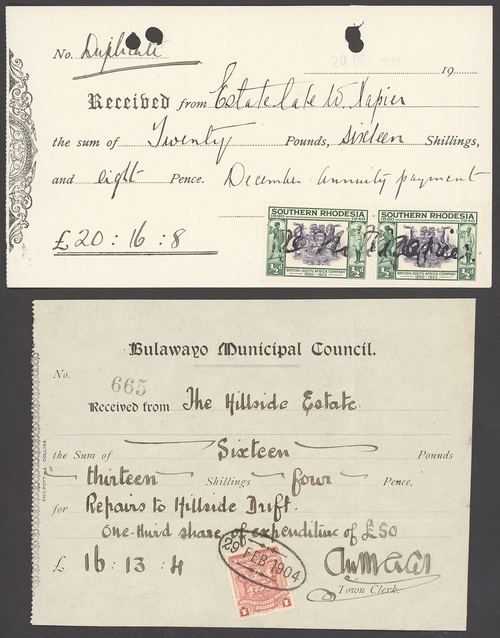 No. Duplicate
20 DEC
19
Received from Estate late W Napier
the sum of Twenty Pounds, sixteen Shillings,
and eight Pence. December annuity payment
£ 20 : 16 : 8
SOUTHERN RHODESIA SOUTHERN RHODESIA
1890 1940 1890 1940
½d ½d ½d ½d
BRITISH SOUTH AFRICA COMPANY BRITISH SOUTH AFRICA COMPANY
1890 - 1923 1890 - 1923
Bulawayo Municipal Council.
No. 665
Received from The Hillside Estate
the Sum of Sixteen Pounds
thirteen Shillings four Pence,
for Repairs to Hillside Drift.
One-third share of expenditure of £50
£ 16 : 13 : 4
29 FEB 1904
Town Clerk.
1 1
PHILPOTT & COLLINS.